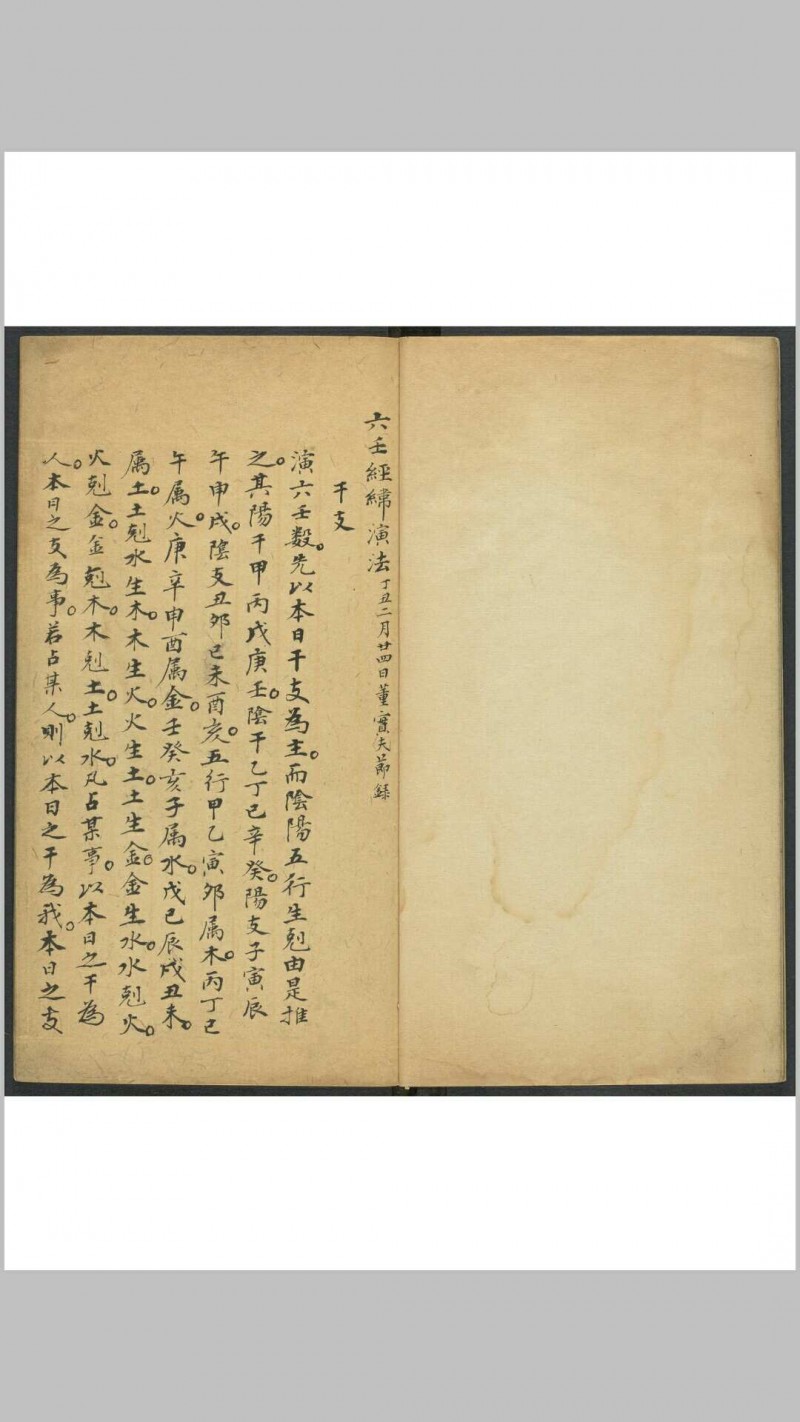 六壬經緯演法 丁丑二月廿四日董實夫節錄
干支
演六壬數。先以本日干支為主。而陰陽五行生剋由是推
之。其陽干甲丙戊庚壬。陰干乙丁己辛癸。陽支子寅辰
午申戌。陰支丑卯巳未酉亥。五行甲乙寅卯属木。丙丁巳
午属火。庚辛申酉属金。壬癸亥子属水。戊己辰戌丑未。
属土。土剋水生木。木生火。火生土。土生金。金生水。水剋火。
火剋金。金剋木。木剋土。土剋水。凡占某事。以本日之干為
人。本日之支為事。若占某人。則以本日之干為我。本日之支